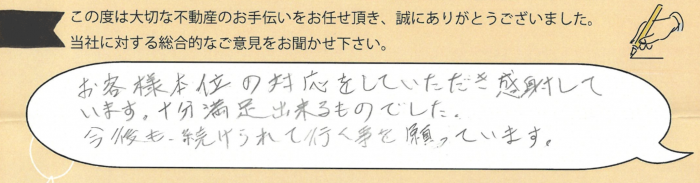 この度は大切な不動産のお手伝いをお任せ頂き、誠にありがとうございました。
当社に対する総合的なご意見をお聞かせ下さい。
お客様本位の対応をしていただき感射して
います。十分満足出来るものでした。
今後も続けられて行く事を願っています。